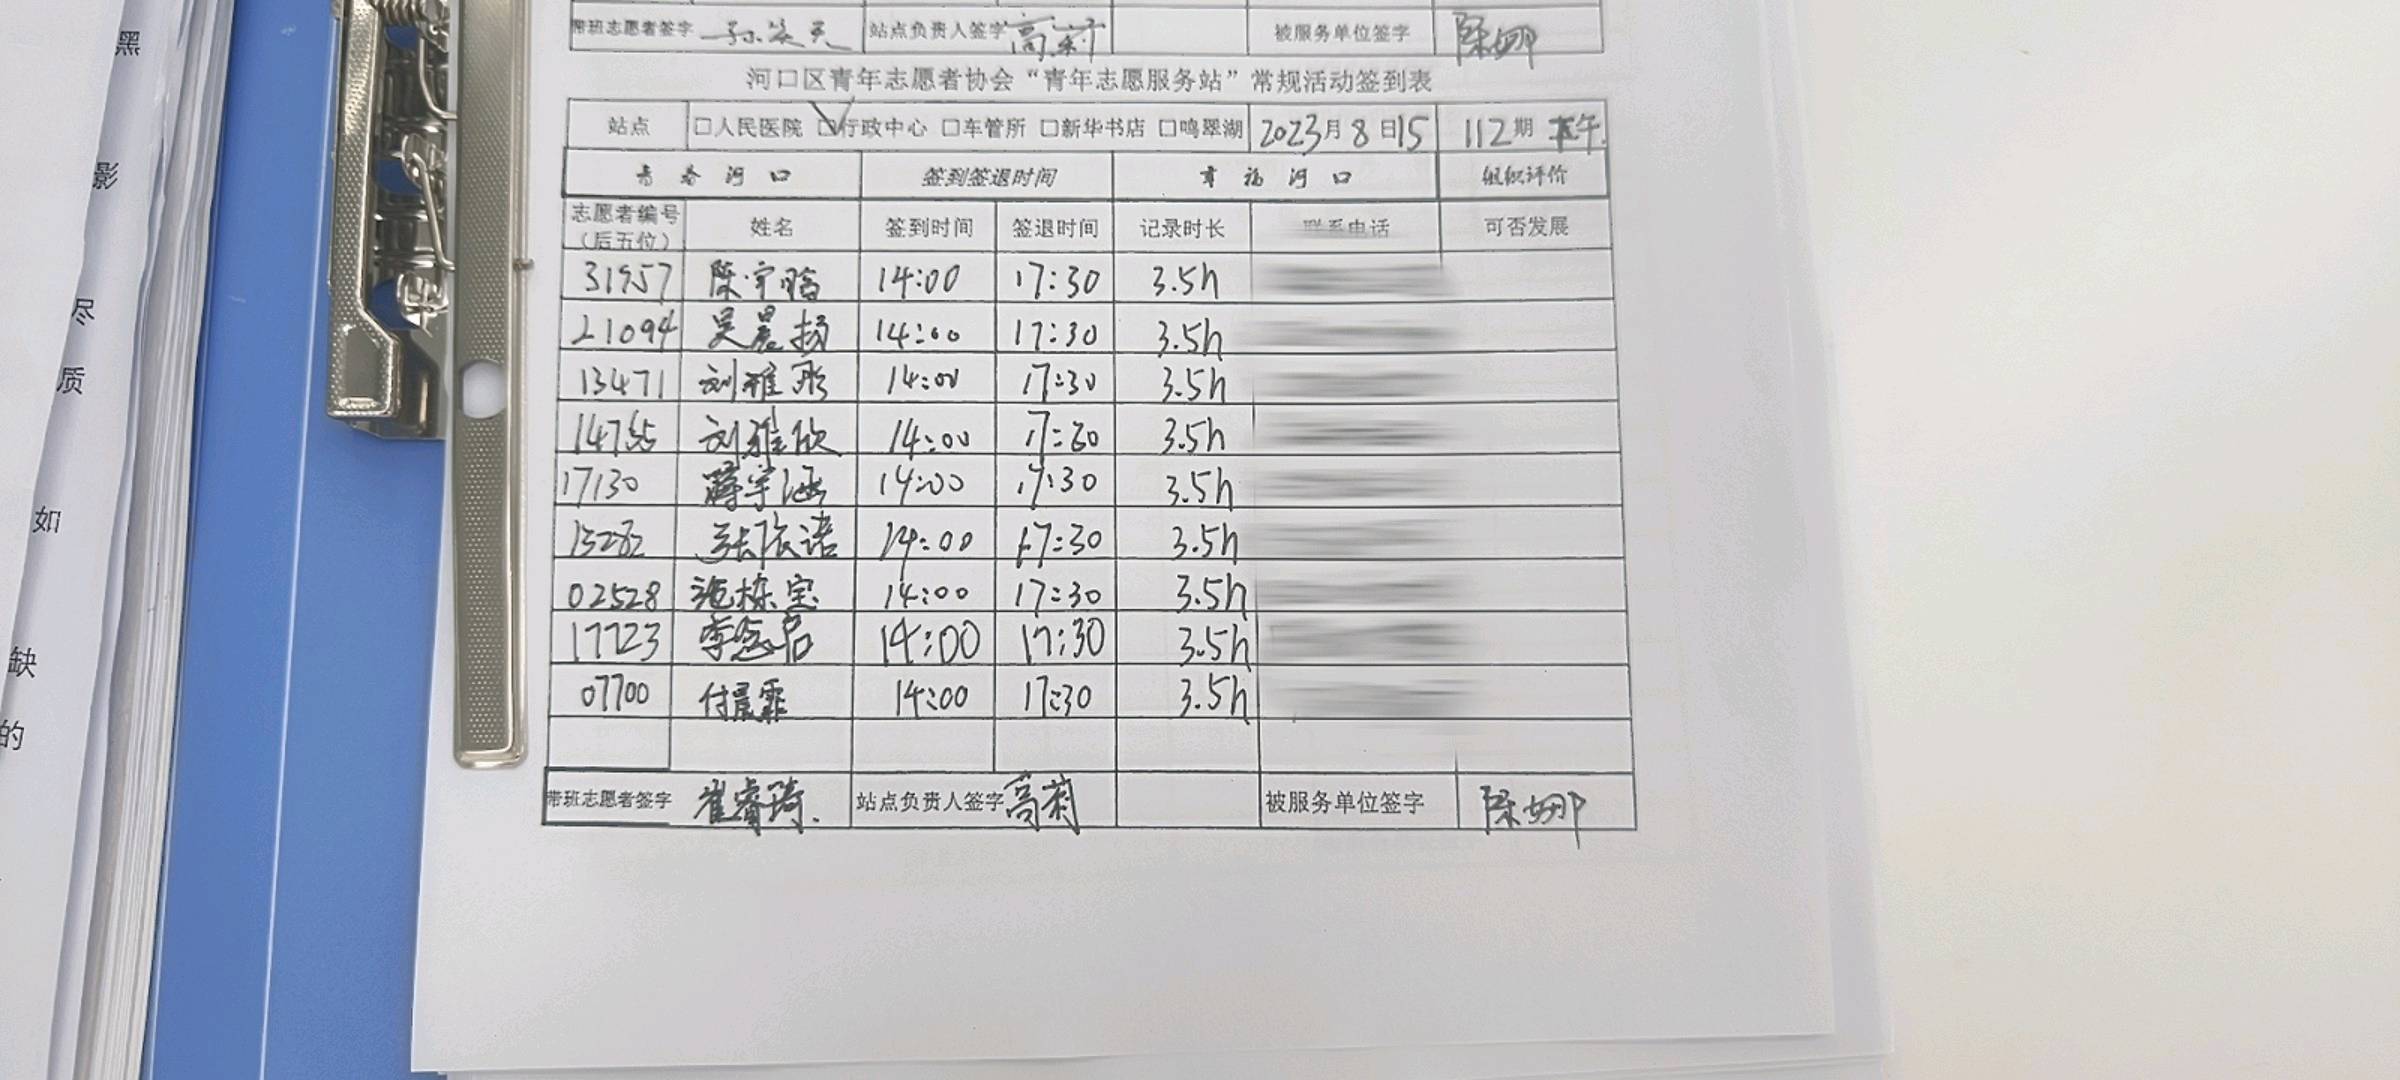 黑
影
尽
质
如
缺
的
带班志愿者签字 站点负责人签字 高莉 被服务单位签字 陈娜
河口区青年志愿者协会“青年志愿服务站”常规活动签到表
站点 □人民医院 ☑行政中心 □车管所 □新华书店 □鸣翠湖 2023月8日15 112期 下午.
青春河口 签到签退时间 幸福河口 组织评价
志愿者编号（后五位） 姓名 签到时间 签退时间 记录时长 联系电话 可否发展
31957 陈宇晗 14:00 17:30 3.5h
21094 吴晨扬 14:00 17:30 3.5h
13471 刘雅彤 14:00 17:30 3.5h
刘雅欣 14:00 17:30 3.5h
17130 蒋宇涵 14:00 17:30 3.5h
15282 张依诺 14:00 17:30 3.5h
02528 栋宝 14:00 17:30 3.5h
17723 李念启 14:00 17:30 3.5h
07700 付晨霏 14:00 17:30 3.5h
带班志愿者签字 崔睿琦. 站点负责人签字 高莉 被服务单位签字 陈娜